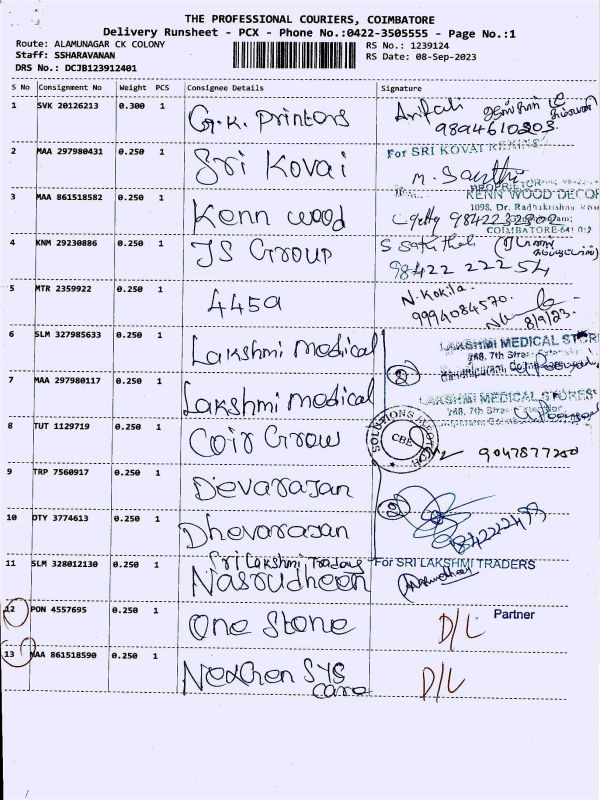 THE PROFESSIONAL COURIERS, COIMBATORE
Delivery Runsheet - PCX - Phone No.:0422-3505555 - Page No.:1
Route: ALAMUNAGAR CK COLONY
Staff: SSHARAVANAN
DRS No.: DCJB123912401
RS No.: 1239124
RS Date: 08-Sep-2023
S No Consignment No Weight PCS Consignee Details Signature
1 SVK 20126213 0.300 1 G.K. Printers
9894610303.
2 MAA 297980431 0.250 1 Sri Kovai
For SRI KOVAI
M. Santhi
PROPRIETOR
3 MAA 861518582 0.250 1 Kenn wood
KENN WOOD DECOR
1098, Dr. Radhakrishna
9842232302
COIMBATORE-641 012
4 KNM 29230886 0.250 1 JS Group
98422 222 54
5 MTR 2359922 0.250 1 4459
N. Kokila.
9994084570.
8/9/23.
6 SLM 327985633 0.250 1 Lakshmi medical
LAKSHMI MEDICAL STOR
268, 7th Street
7 MAA 297980117 0.250 1 Lakshmi medical
LAKSHMI MEDICAL STORES
268, 7th Street
8 TUT 1129719 0.250 1 Coir Grow
SOLUTIONS INFOTECH
CBE
9047877200
9 TRP 7560917 0.250 1 Devarajan
10 OTY 3774613 0.250 1 Dhevarajan
11 SLM 328012130 0.250 1 Sri Lakshmi Traders
Nasrudheen
For SRI LAKSHMI TRADERS
Partner
12 PON 4557695 0.250 1 One Stone
D/L
13 MAA 861518590 0.250 1 NexGen SYS
care
D/L